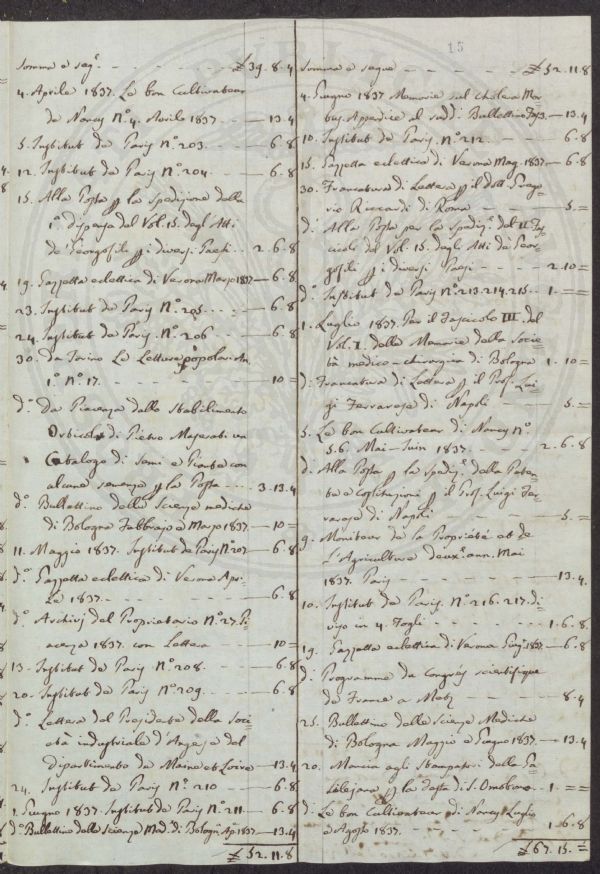 15
Somma e seg.e £ 39. 8. 4
4. Aprile 1837. Le bon Cultivateur
de Nancy N.o 4. Aprile 1837 - 13. 4
5. Institut de Paris N.o 203. 6. 8
12. Institut de Paris N.o 204. 6. 8
15. Alla Posta p la Spedizione della
1.a dispensa del Vol. 15. degli Atti
de' Georgofili p i diversi Paesi 2. 6. 8
19. Gazzetta eclettica di Verona Marzo 1837 6. 8
23. Institut de Paris N.o 205 6. 8
24. Institut de Paris N.o 206 6. 8
30. da Torino Le Letture popolari An.
1.o N.o 17. 10 =
d.o Da Piacenza dallo Stabilimento
Orticolo di Pietro Maserati un
Catalogo di Semi e Piante con
alcune p la Posta 3. 13. 4
d.o Bullettino delle Scienze mediche
di Bologna Febbrajo e Marzo 1837. 10 =
11. Maggio 1837. Institut de Paris N.o 207 6. 8
d.o Gazzetta eclettica di Verona Apri-
le 1837. 6. 8
d.o Archivj del Proprietario N.o 27. Pi-
acenza 1837. con Lettera 10 =
13. Institut de Paris N.o 208. 6. 8
20. Institut de Paris N.o 209. 6. 8
d.o Lettera del Presidente della Soci-
età industriale d'Angers del
dipartimento de Maine et Loire 13. 4
24. Institut de Paris N.o 210 6. 8
1. Giugno 1837. Institut de Paris N.o 211 6. 8
d.o Bullettino delle Scienze Med. di Bologna Ap. 1837. 13. 4
£ 52. 11. 8
Somma e segue £ 52. 11. 8
4. Giugno 1837. Memorie sul Cholera Mor-
bus, Appendice al sud.o Bullettino Fas. 3. 13. 4
10. Institut de Paris N.o 212 6. 8
15. Gazzetta eclettica di Verona Mag. 1837 6. 8
30. Francatura di Lettera p il dott.
Riccardi di Roma 5. =
d. Alla Posta per la Spediz.e del II Fas-
cicolo del Vol. 15. degli Atti de Geor-
gofili p i diversi Paesi 2. 10 =
d.o Institut de Paris N.o 213. 214. 215. 1. =
1. Luglio 1837. Per il Fascicolo III. del
Vol. I. delle Memorie della Socie-
tà medico-chirurgica di Bologna 1. 10 =
d. Francatura di Lettera p il Prof. Lui-
gi Ferrarese di Napoli 5. =
5. Le bon Cultivateur de Nancy N.o
5. 6. Mai-Juin 1837. 2. 6. 8
d. Alla Posta p la Spediz.e della Paten-
te e Costituzioni p il Prof. Luigi Fer-
rarese di Napoli 5. =
9. Moniteur de la Propriété et de
l'Agriculture deux.e ann. Mai
1837. Paris 13. 4
10. Institut de Paris. N.o 216. 217. di-
viso in 4. Fogli 1. 6. 8
19. Gazzetta eclettica di Verona Giug. 1837. 6. 8
d. Programme du Congrés scientifique
de France a Metz 8. 4
25. Bullettino delle Scienze Mediche
di Bologna Maggio e Giugno 1837. 13. 4
20. Mancia agli Stampatori della Ga-
lilejana p la festa di S. Omobono. 1. = =
d. Le bon Cultivateur de Nancy Luglio
e Agosto 1837. 1. 6. 8
£ 67. 15. =